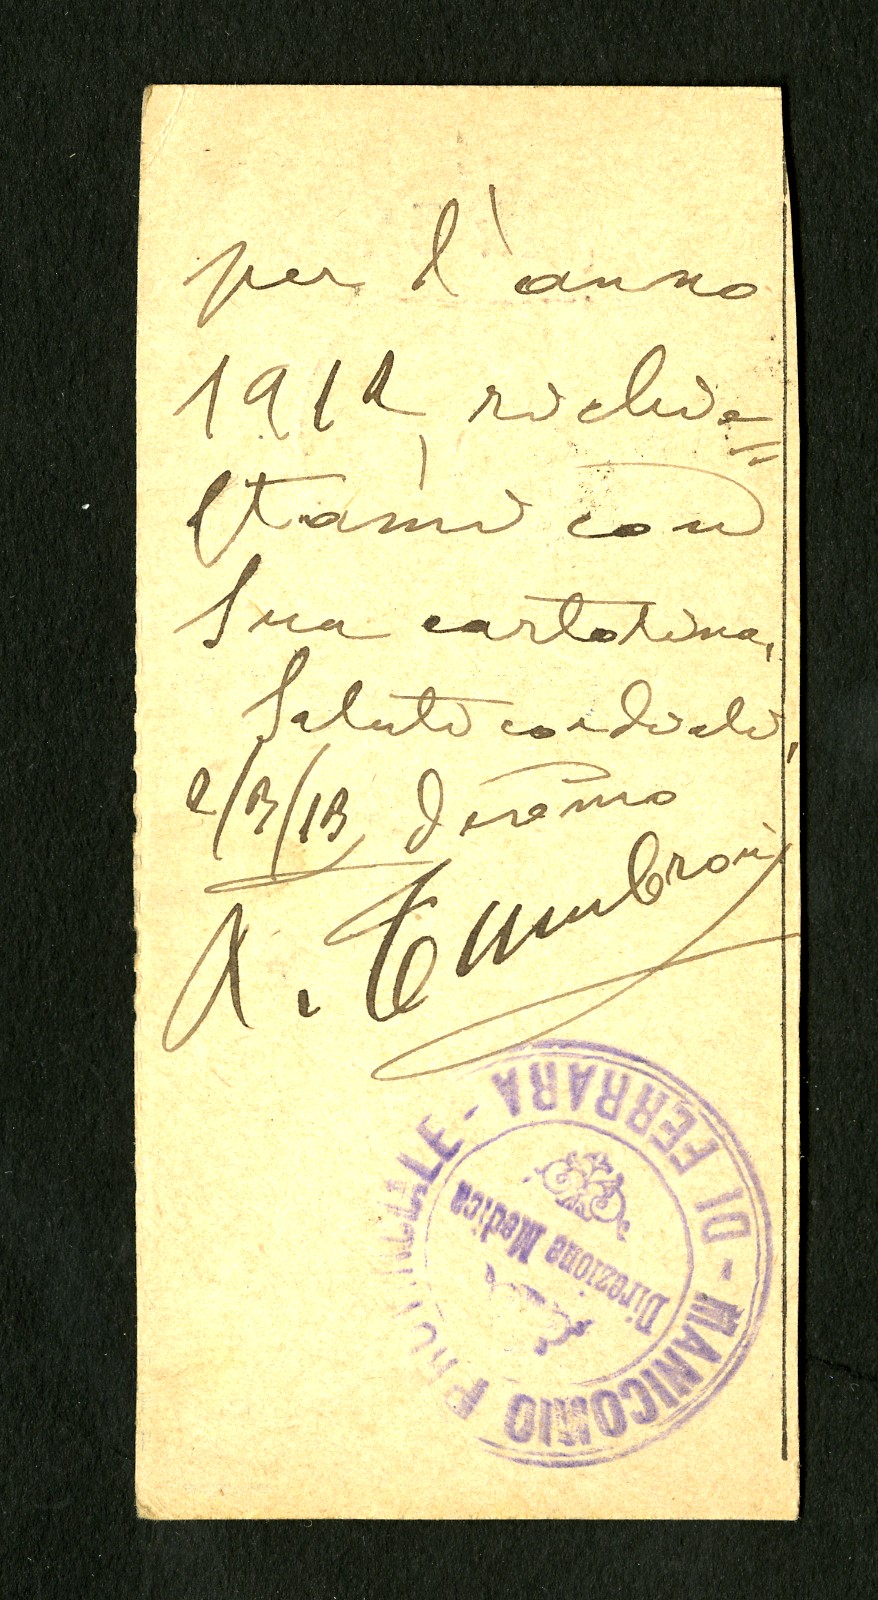 per l'anno
1912 richie=
stami con
Sua cartolina,
Saluti cordiali,
2/3/13 devmo
R. Tambroni
MANICOMIO PROVINCIALE - DI FERRARA -
Direzione Medica